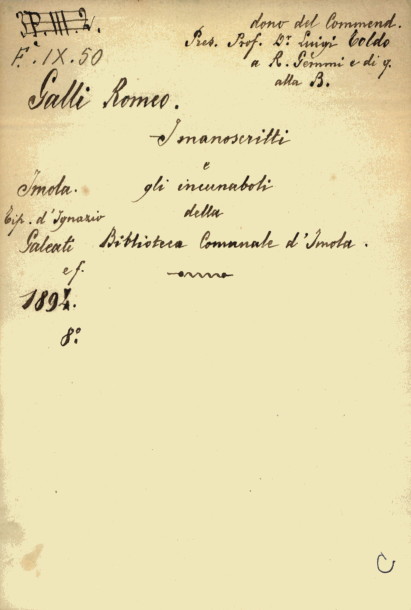 3P.III.2.
F.ª IX.50
dono del Commend.
Pres. Prof. D.r Luigi Toldo
a R. e di q.
alla B.
Galli Romeo.
I manoscritti
e
gli incunaboli
della
Biblioteca Comunale d'Imola.
Imola.
Tip. d'Ignazio
Galeati
e f.
1894.
8.º
C